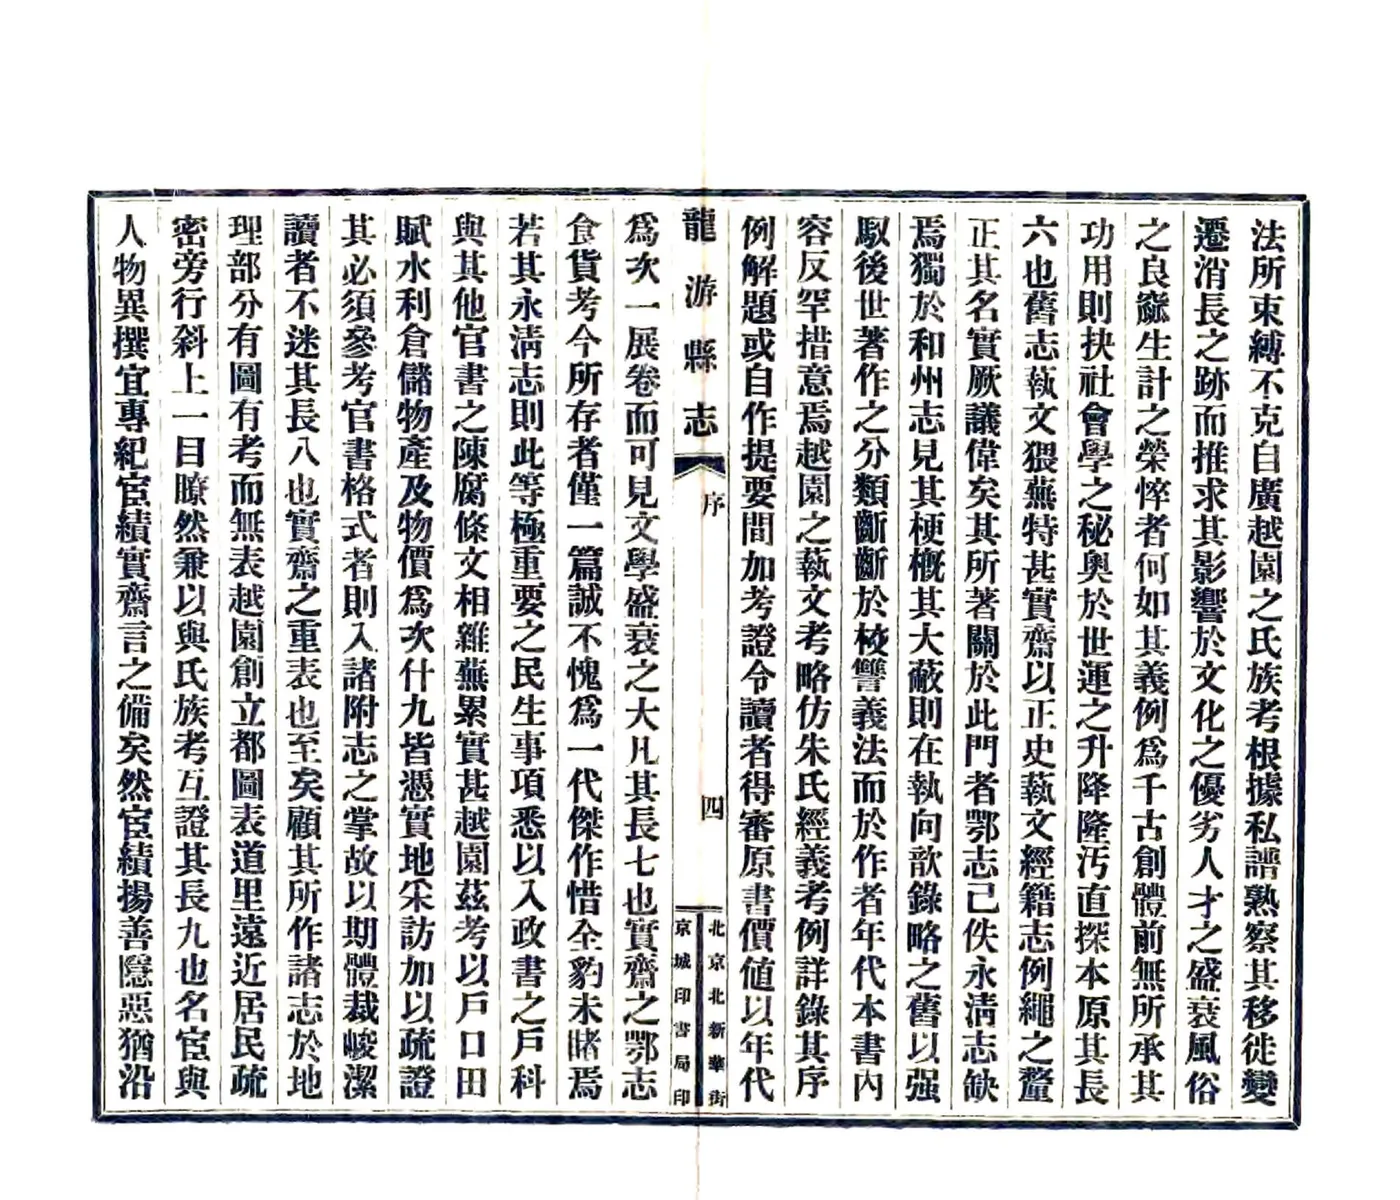 法所束縛不克自廣越園之氏族考根據私譜熟察其移徙變
遷消長之跡而推求其影響於文化之優劣人才之盛衰風俗
之良窳生計之榮悴者何如其義例爲千古創體前無所承其
功用則抉社會學之秘奧於世運之升降隆汚直探本原其長
六也舊志蓺文猥蕪特甚實齋以正史蓺文經籍志例繩之釐
正其名實厥議偉矣其所著關於此門者鄂志已佚永淸志缺
焉獨於和州志見其梗槪其大蔽則在執向歆錄略之舊以强
馭後世著作之分類斷斷於校讐義法而於作者年代本書內
容反罕措意焉越園之蓺文考略仿朱氏經義考例詳錄其序
例解題或自作提要間加考證令讀者得審原書價値以年代
龍游縣志
序
四
北京北新華街
京城印書局印
爲次一展卷而可見文學盛衰之大凡其長七也實齋之鄂志
食貨考今所存者僅一篇誠不愧爲一代傑作惜全豹未睹焉
若其永淸志則此等極重要之民生事項悉以入政書之戶科
與其他官書之陳腐條文相雜蕪累實甚越園茲考以戶口田
賦水利倉儲物產及物價爲次什九皆憑實地采訪加以疏證
其必須參考官書格式者則入諸附志之掌故以期體裁峻潔
讀者不迷其長八也實齋之重表也至矣顧其所作諸志於地
理部分有圖有考而無表越園創立都圖表道里遠近居民疏
密旁行斜上一目瞭然兼以與氏族考互證其長九也名宦與
人物異撰宜專紀宦績實齋言之備矣然宦績揚善隱惡猶沿